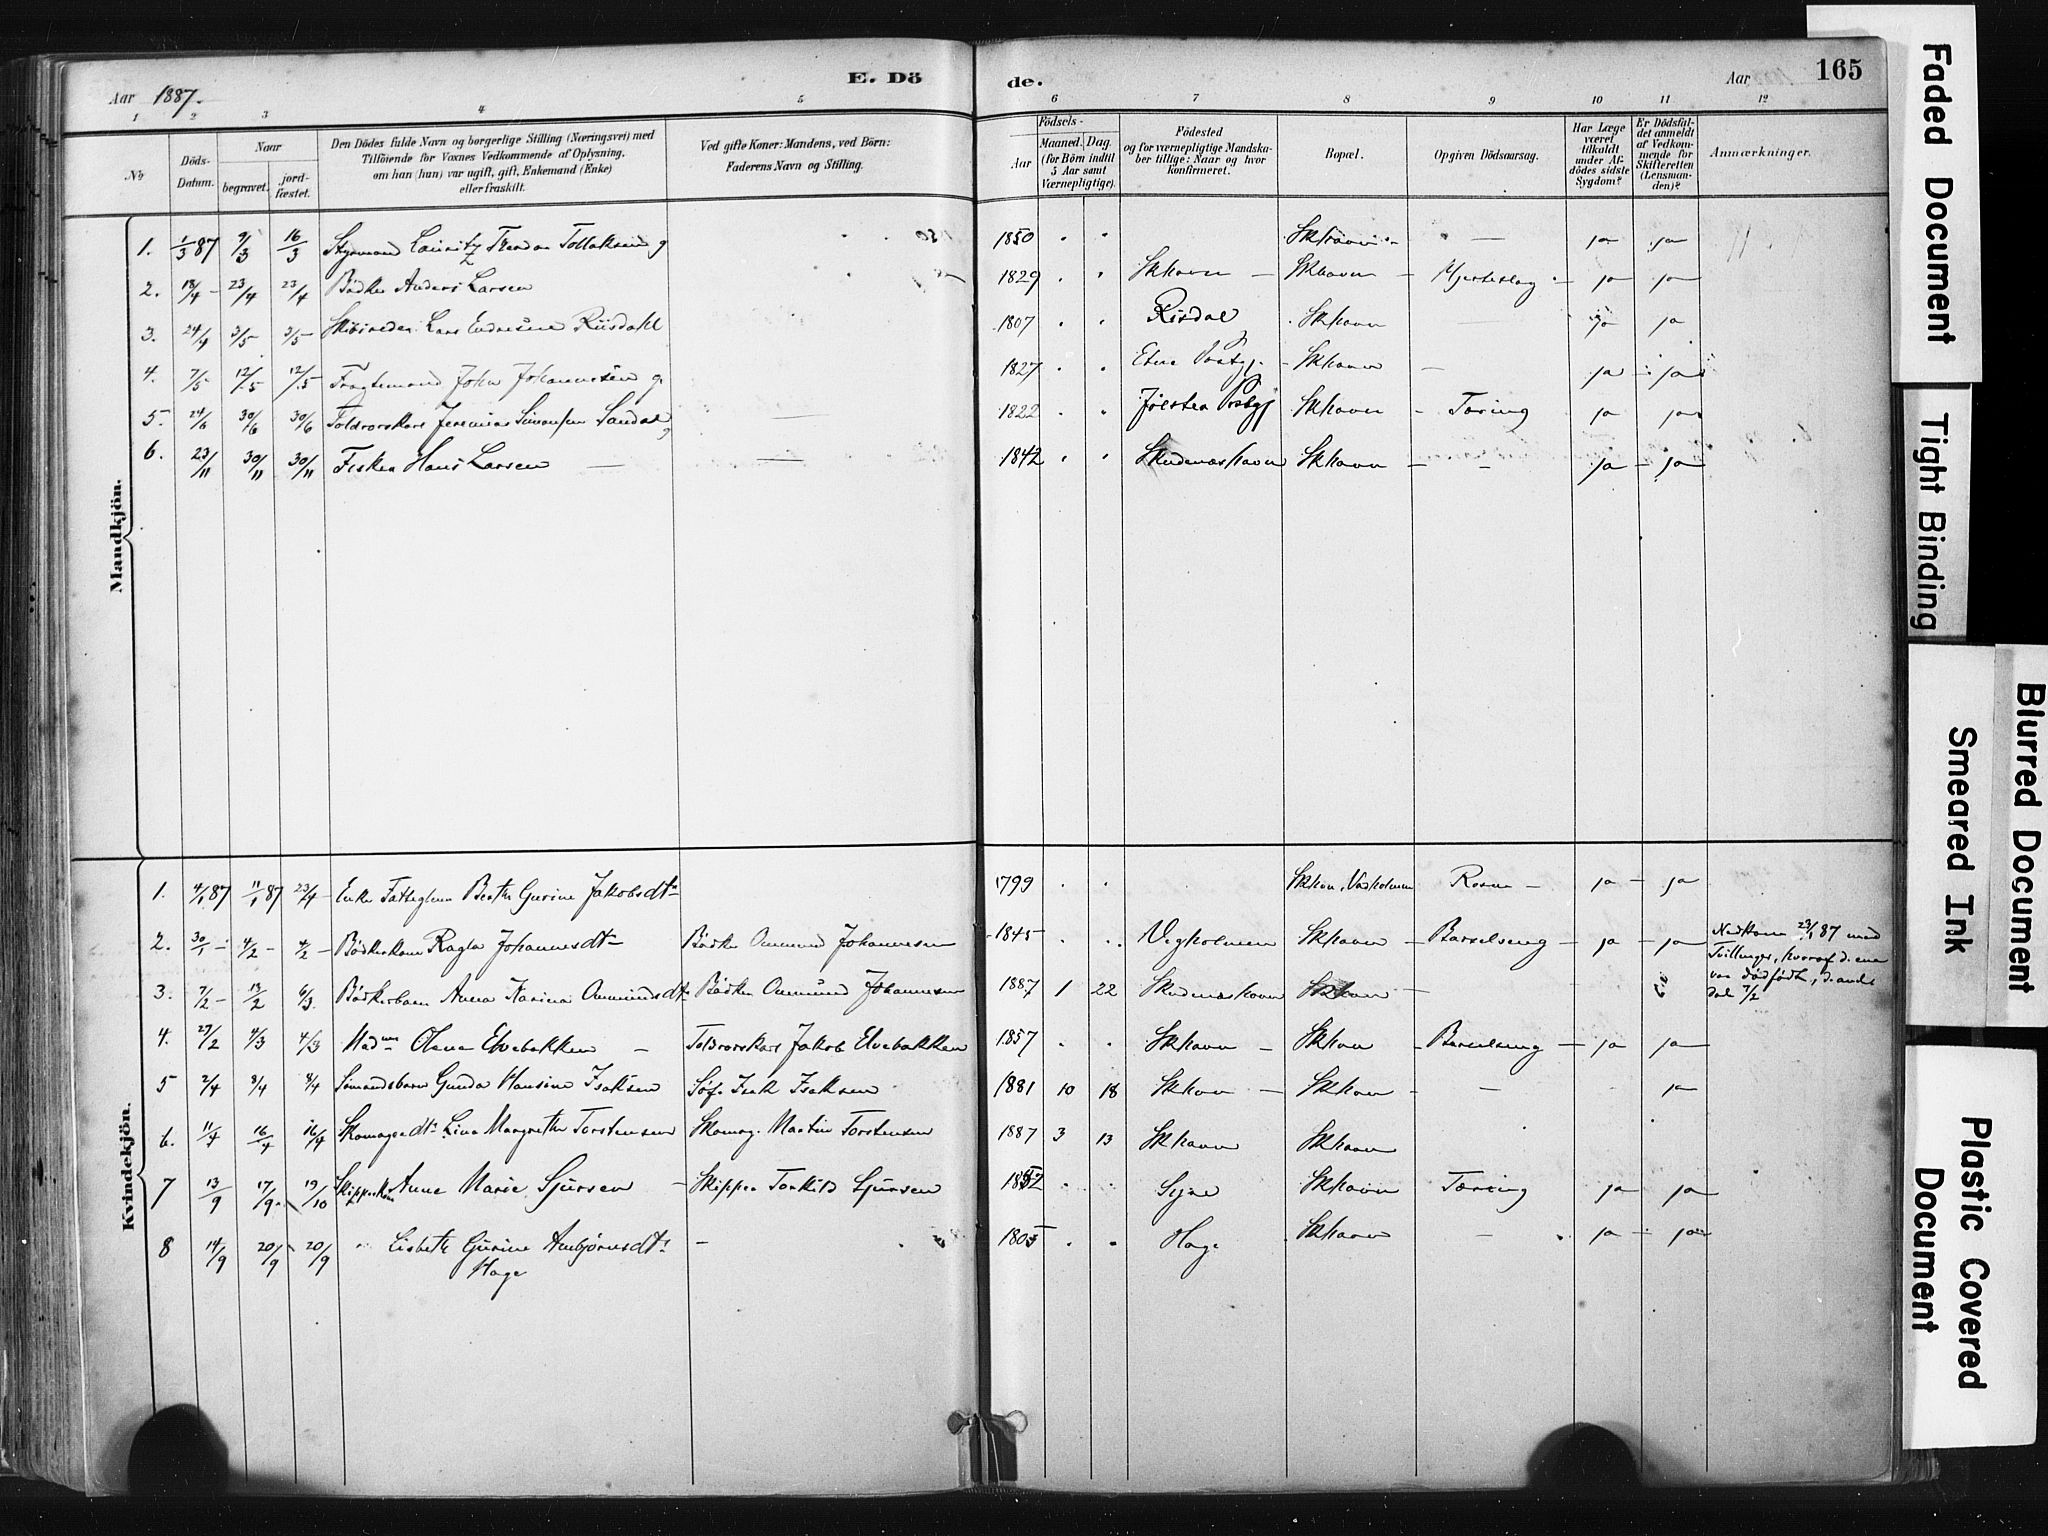 E. Dö
de.
Aar 1887.
Aar 165
1 2 3 4 5 6 7 8 9 10 11 12
No
Döds-Datum.
Naar
begravet. jord-fæstet.
Den Dödes fulde Navn og borgerlige Stilling (Næringsvei) med
Tilföiende for Voxnes Vedkommende af Oplysning,
om han (hun) var ugift, gift, Enkemand (Enke)
eller fraskilt.
Ved gifte Koner: Mandens, ved Börn:
Faderens Navn og Stilling.
Födsels-
Aar Maaned. Dag.
(for Börn indtil
5 Aar samt
Værnepligtige).
Födested
og for værnepligtige Mandska-
ber tillige: Naar og hvor
konfirmeret.
Bopæl.
Opgiven Dödsaarsag.
Har Læge
været
tilkaldt
under Af-
dödes sidste
Sygdom?
Er Dödsfal-
det anmeldt
af Vedkom-
mende for
Skifteretten
(Lensman-
den)?
Anmærkninger.
Mandkjön.
1. 1/3 87 9/3 16/3 Styrmand Lauritz Tollaksen g 1850 Skhavn — ja ja
2. 18/4 – 23/4 23/4 Bödker Anders Larsen 1829 Skhavn – Skhavn – Hjerteslag – ja ja
3. 24/4 3/5 3/5 Skibsreder Lars Endresen Riisdahl 1807 Risdal Skhavn — ja ja
4. 7/5 12/5 12/5 Fragtemand John Johannesen g. 1827 Etne Præstgj. – Skhavn – ja – ja
5. 24/6 30/6 30/6 Toldrorskarl Jeremias Simonsen Sandal g — 1822 Jölster Præstgj Skhavn – Tæring ja ja
6. 23/11 30/11 30/11 Fisker Hans Larsen — — 1842 Skudeneshavn Skhavn – – ja – ja
Kvindekjön.
1. 4/1 87 11/1 87 23/4 Enke Fattiglem Berthe Gurine Jakobsdtr 1799 Skhavn, Vaaholmen – ja – ja
2. 30/1 – 4/2 – 4/2 – Bödkerkone Ragla Johannesdtr Bödker Ommund Johannesen 1845 Vegholmen Skhavn – Barselseng – ja – ja Nedkom 23/1 87 med
Tvillinger, hvoraf d. ene
var dödfödt, d. anden
död 7/2
3. 7/2 – 13/2 6/3 Bödkerbarn Anna Karina Ommundsdtr Bödker Ommund Johannesen 1887 1 22 Skudeneshavn Skhavn –
4. 27/2 4/3 4/3 Madme Olena Elvebakken – Toldrorskarl Jakob Elvebakken 1857 Skhavn – Skhavn – Barselseng – ja – ja
5 2/4 8/4 8/4 Sömandsbarn Gunda Hansine Isaksen Söf. Isak Isaksen 1881 10 18 Skhavn – Skhavn – – ja
6. 11/4 16/4 16/4 Skomagerdtr Lina Margrethe Torstensen Skomag. Martin Torstensen 1887 3 13 Skhavn Skhavn
7 13/9 17/9 19/10 Skipperkone Anne Marie Sjursen – Skipper Torkild Sjursen 1852 Skhavn Tæring ja ja
8 14/9 20/9 20/9 " Lisbeth Gurine Anbjörnsdtr – 1805 Hage Skhavn – ja – ja
Hage
Faded Document
Tight Binding
Blurred Document
Smeared Ink
Plastic Covered
Document